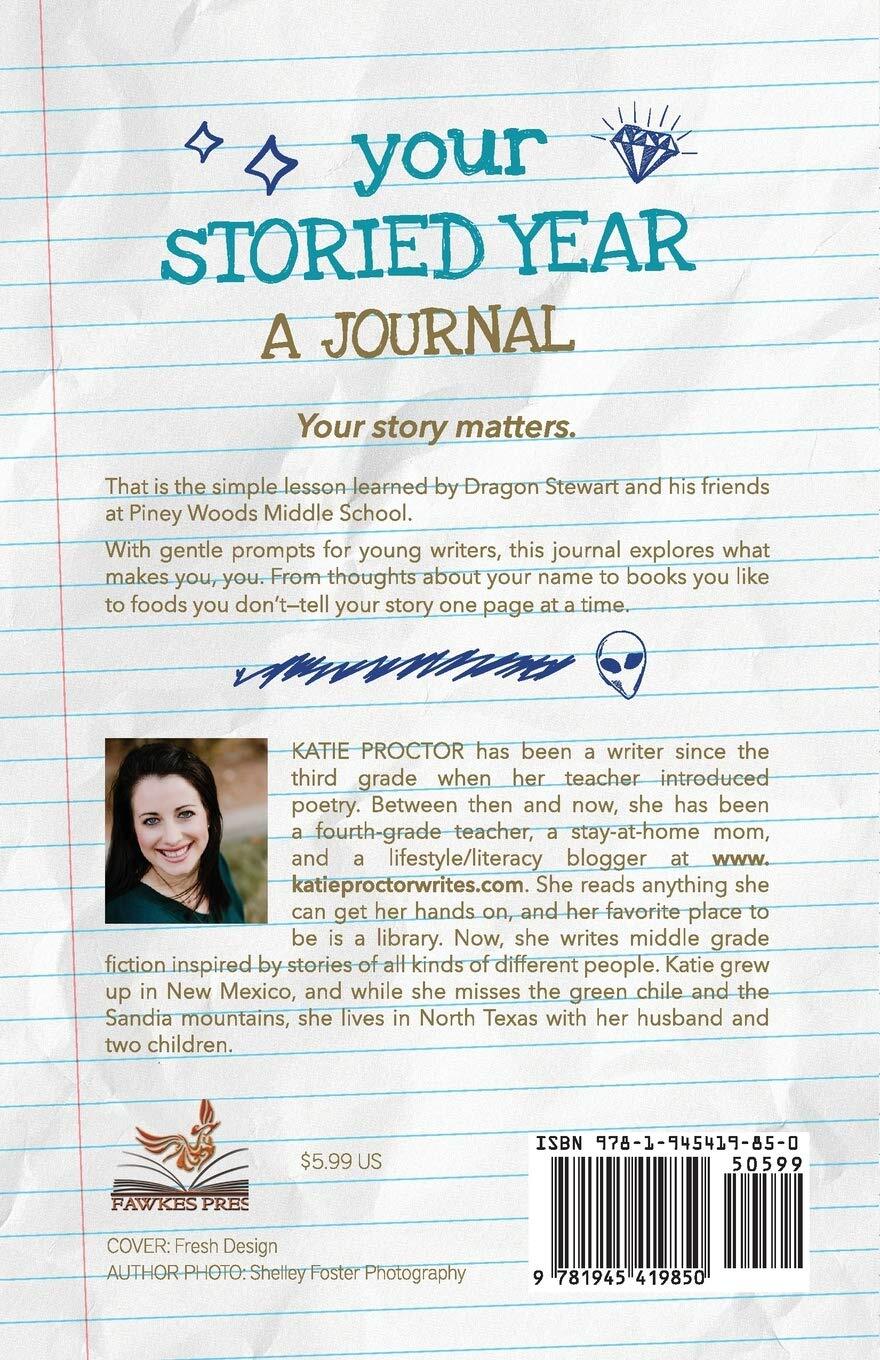 your
STORIED YEAR
A JOURNAL
Your story matters.
That is the simple lesson learned by Dragon Stewart and his friends
at Piney Woods Middle School.
With gentle prompts for young writers, this journal explores what
makes you, you. From thoughts about your name to books you like
to foods you don't—tell your story one page at a time.
KATIE PROCTOR has been a writer since the
third grade when her teacher introduced
poetry. Between then and now, she has been
a fourth-grade teacher, a stay-at-home mom,
and a lifestyle/literacy blogger at www.
katieproctorwrites.com. She reads anything she
can get her hands on, and her favorite place to
be is a library. Now, she writes middle grade
fiction inspired by stories of all kinds of different people. Katie grew
up in New Mexico, and while she misses the green chile and the
Sandia mountains, she lives in North Texas with her husband and
two children.
FAWKES PRES
$5.99 US
ISBN 978-1-945419-85-0
50599
9 781945 419850
COVER: Fresh Design
AUTHOR PHOTO: Shelley Foster Photography